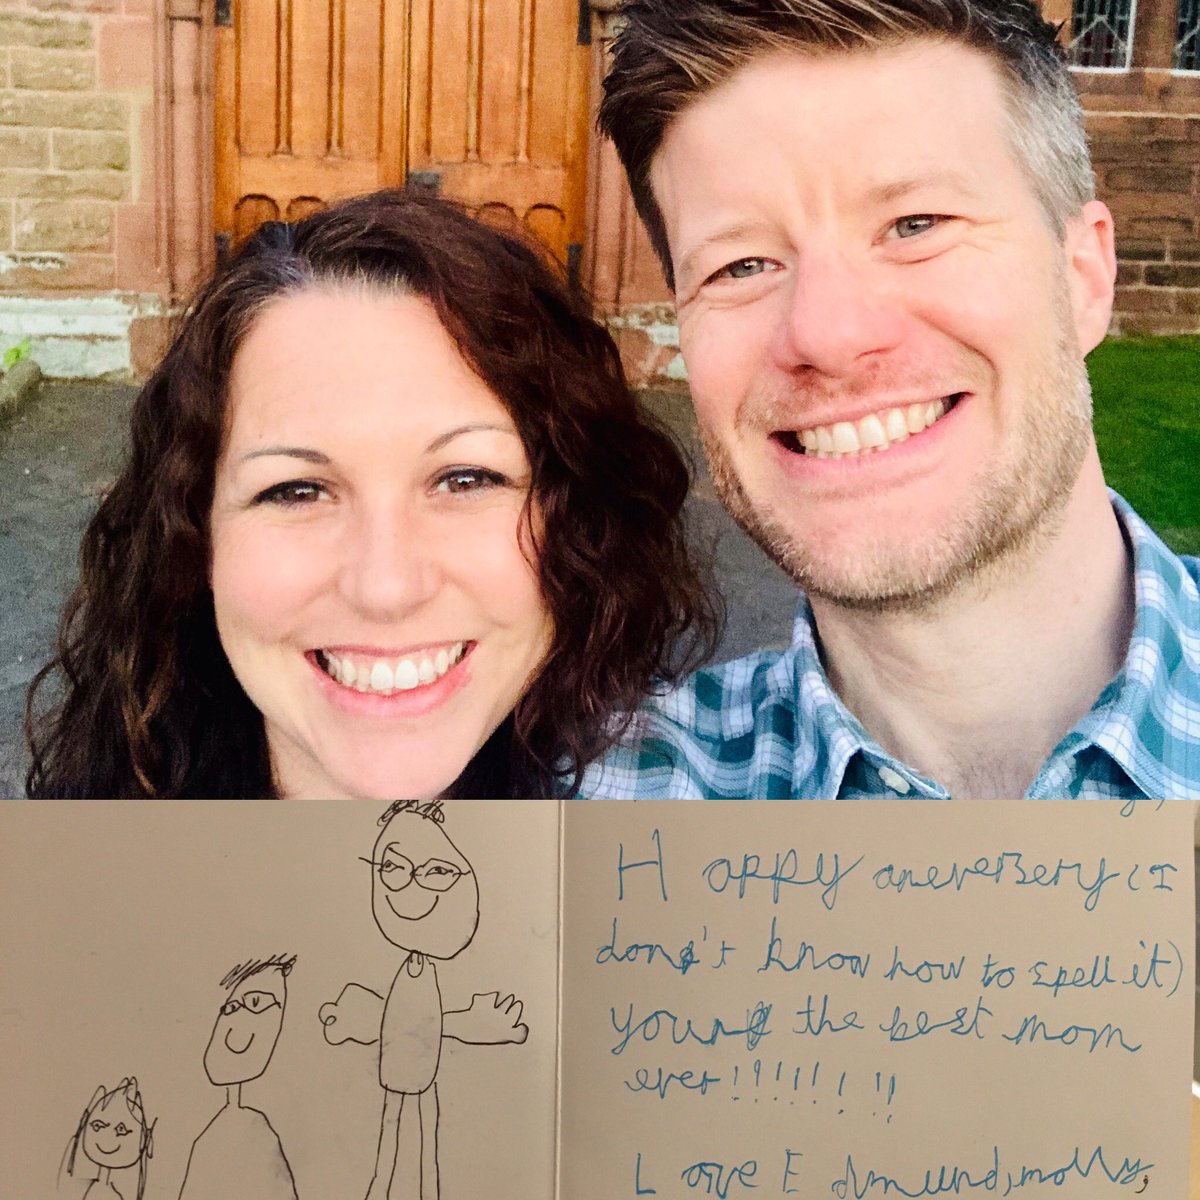 Happy aneversery (I
don't know how to spell it)
your the best mom
ever!!!!!!!!!
Love Edmund, molly,